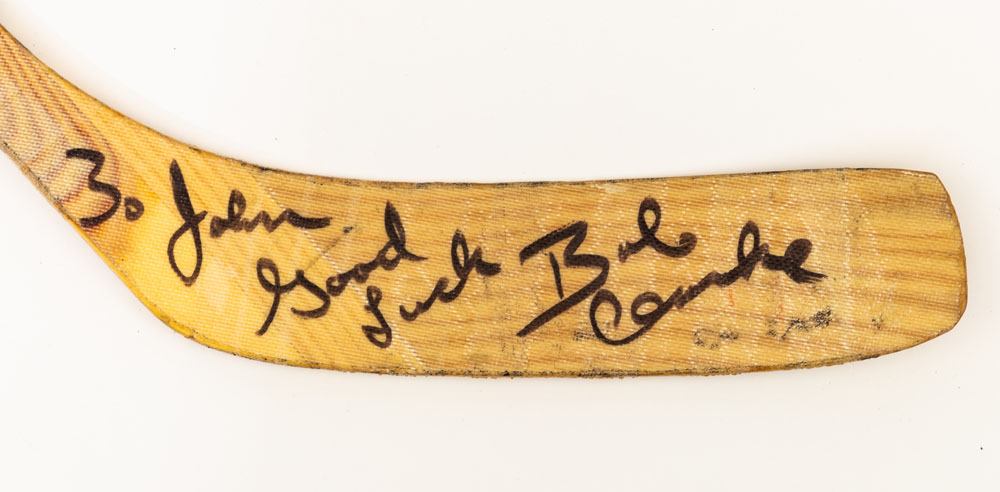 To John
Good
Luck
Bob
Clarke